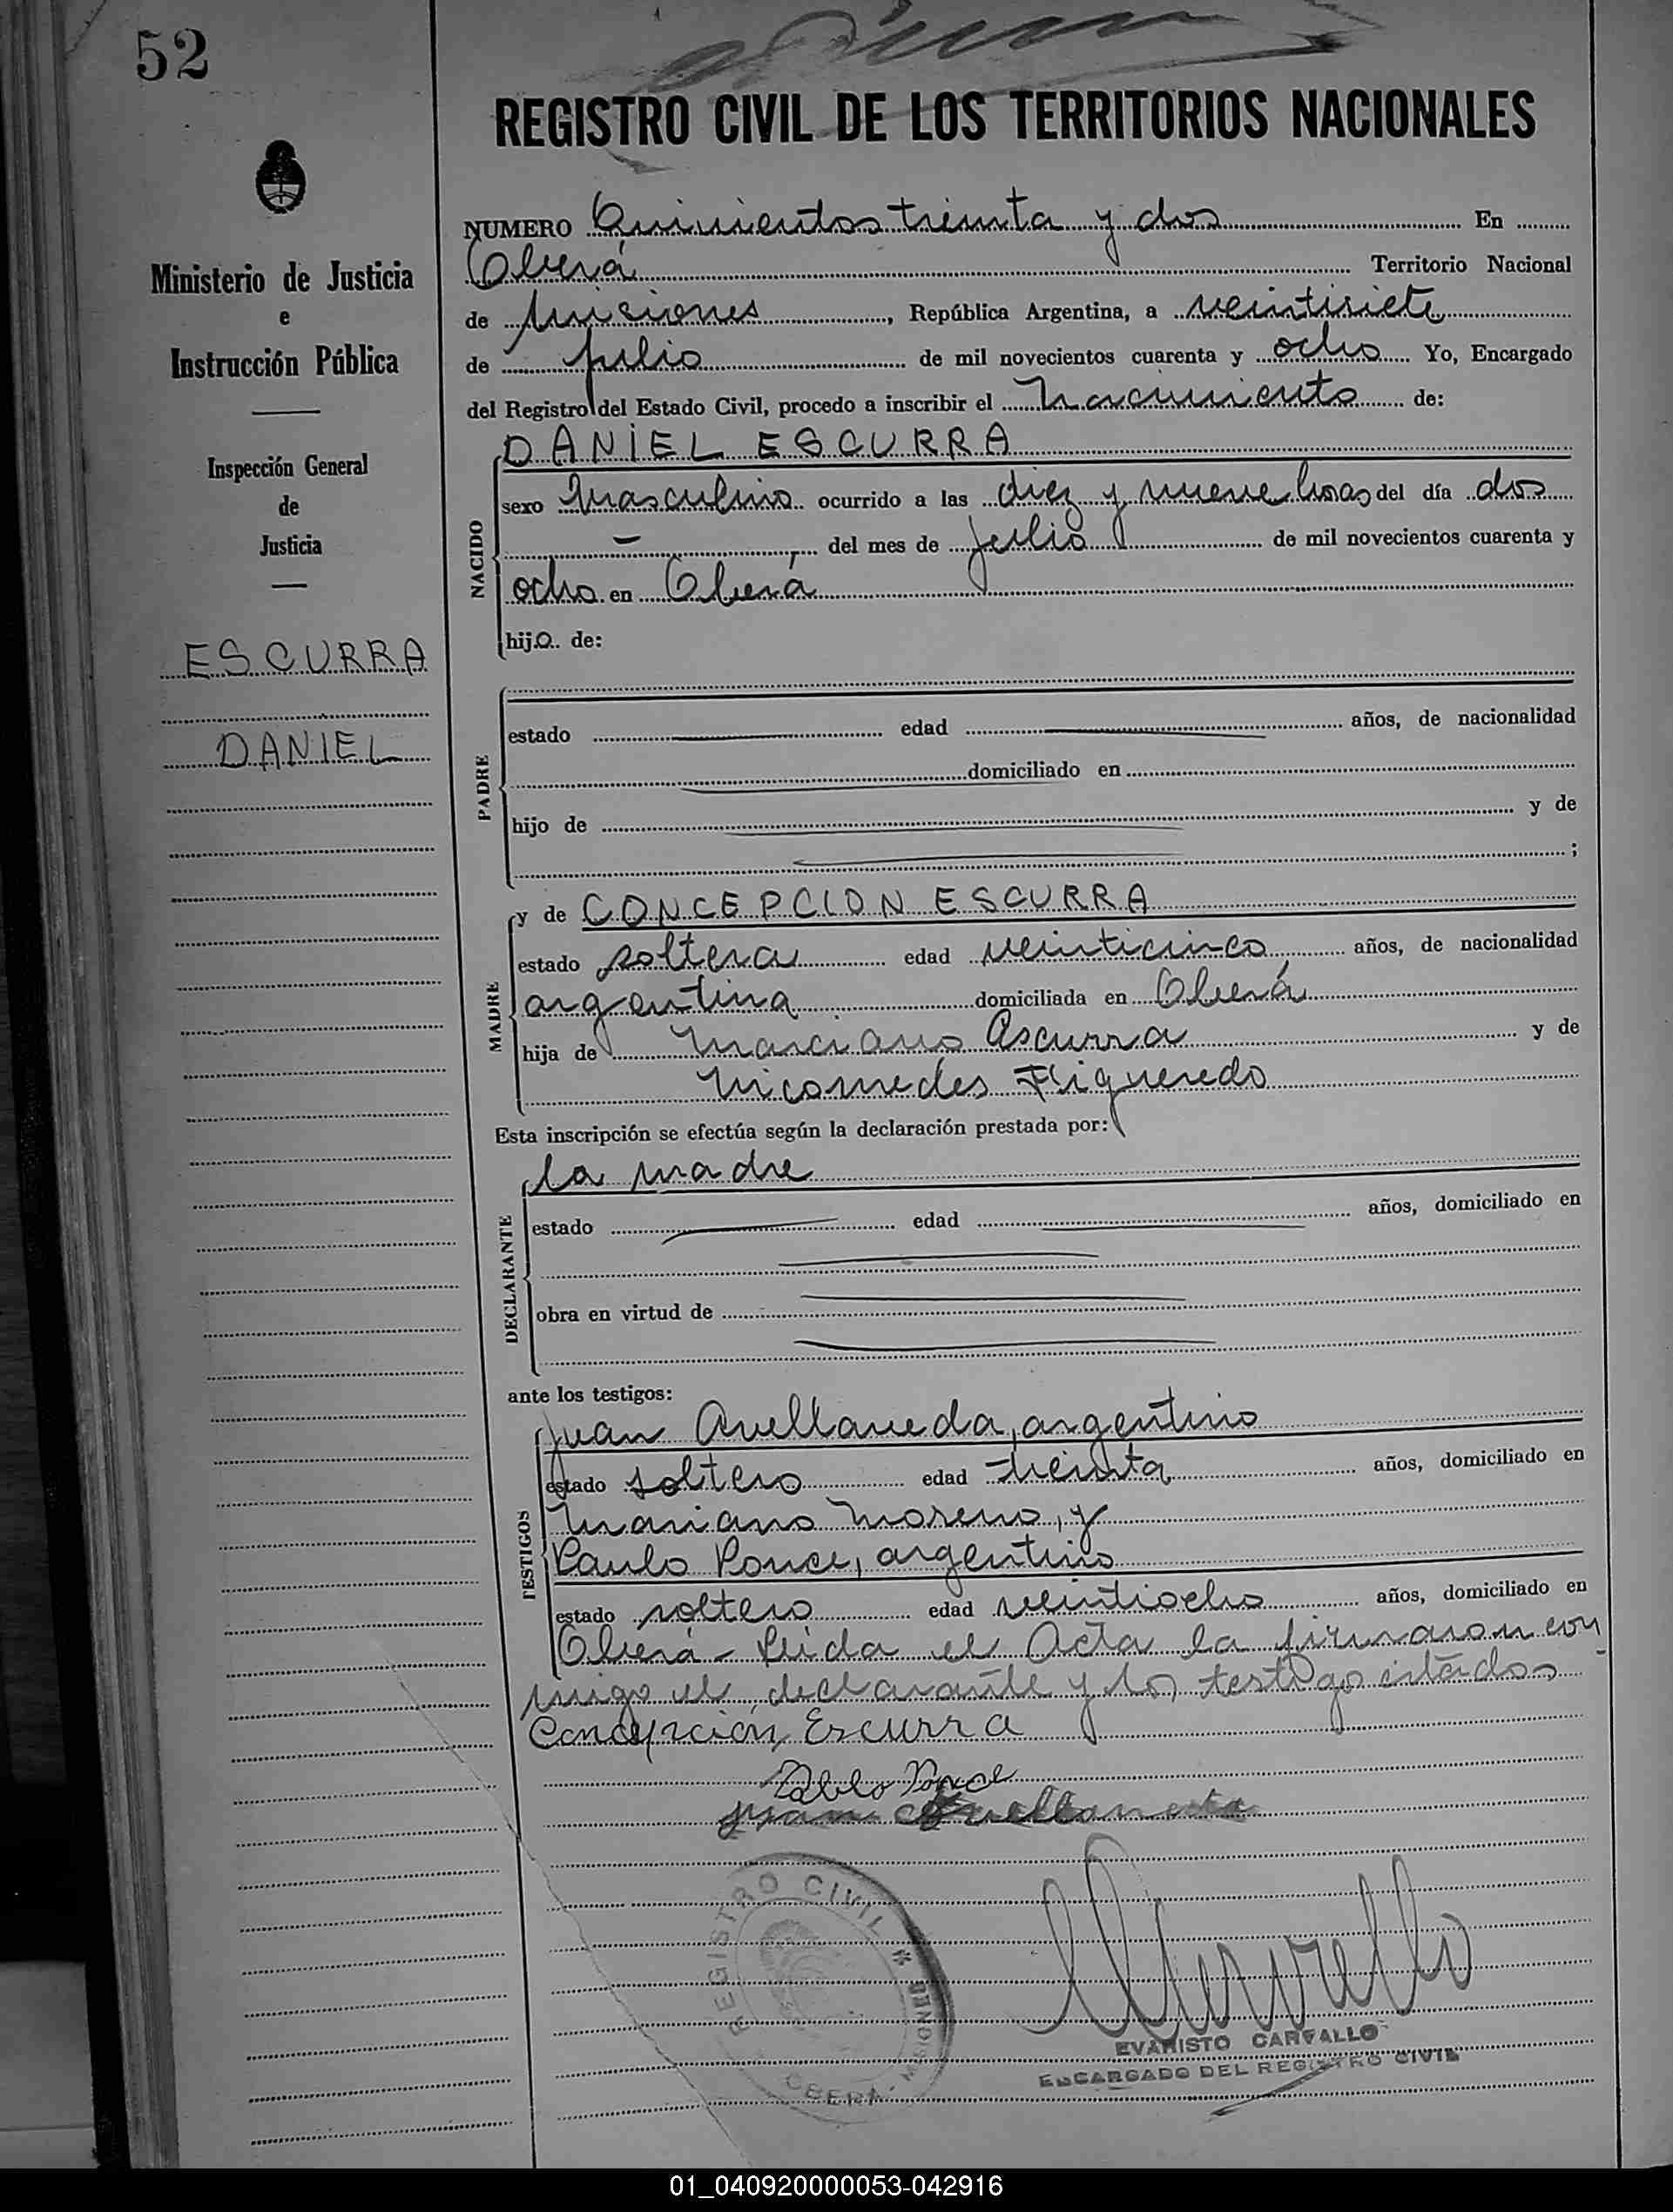 52
REGISTRO CIVIL DE LOS TERRITORIOS NACIONALES
Ministerio de Justicia
e
Instrucción Pública
Inspección General
de
Justicia
ESCURRA
DANIEL
NUMERO Quinientos treinta y dos En
Oberá Territorio Nacional
de Misiones, República Argentina, a veintisiete
de julio de mil novecientos cuarenta y ocho Yo, Encargado
del Registro del Estado Civil, procedo a inscribir el Nacimiento de:
NACIDO
DANIEL ESCURRA
sexo Masculino ocurrido a las diez y nueve horas del día dos
— , del mes de julio de mil novecientos cuarenta y
ocho en Oberá
hijo de:
PADRE
estado edad años, de nacionalidad
domiciliado en
hijo de y de
;
MADRE
y de CONCEPCION ESCURRA
estado soltera edad veinticinco años, de nacionalidad
argentina domiciliada en Oberá
hija de Marciano Escurra y de
Nicomedes Figueredo
Esta inscripción se efectúa según la declaración prestada por:
DECLARANTE
la madre
estado edad años, domiciliado en
obra en virtud de
ante los testigos:
TESTIGOS
Juan Avellaneda, argentino
estado soltero edad treinta años, domiciliado en
Mariano Moreno, y
Paulo Ponce, argentino
estado soltero edad veintiocho años, domiciliado en
Oberá - Leida el Acta la firmaron con
migo el declarante y los testigo citados
Concepción Escurra
Pablo Ponce
Juan Avellaneda
REGISTRO CIVIL * MISIONES
OBERA
EVARISTO CARVALLO
ENCARGADO DEL REGISTRO CIVIL
01_040920000053-042916